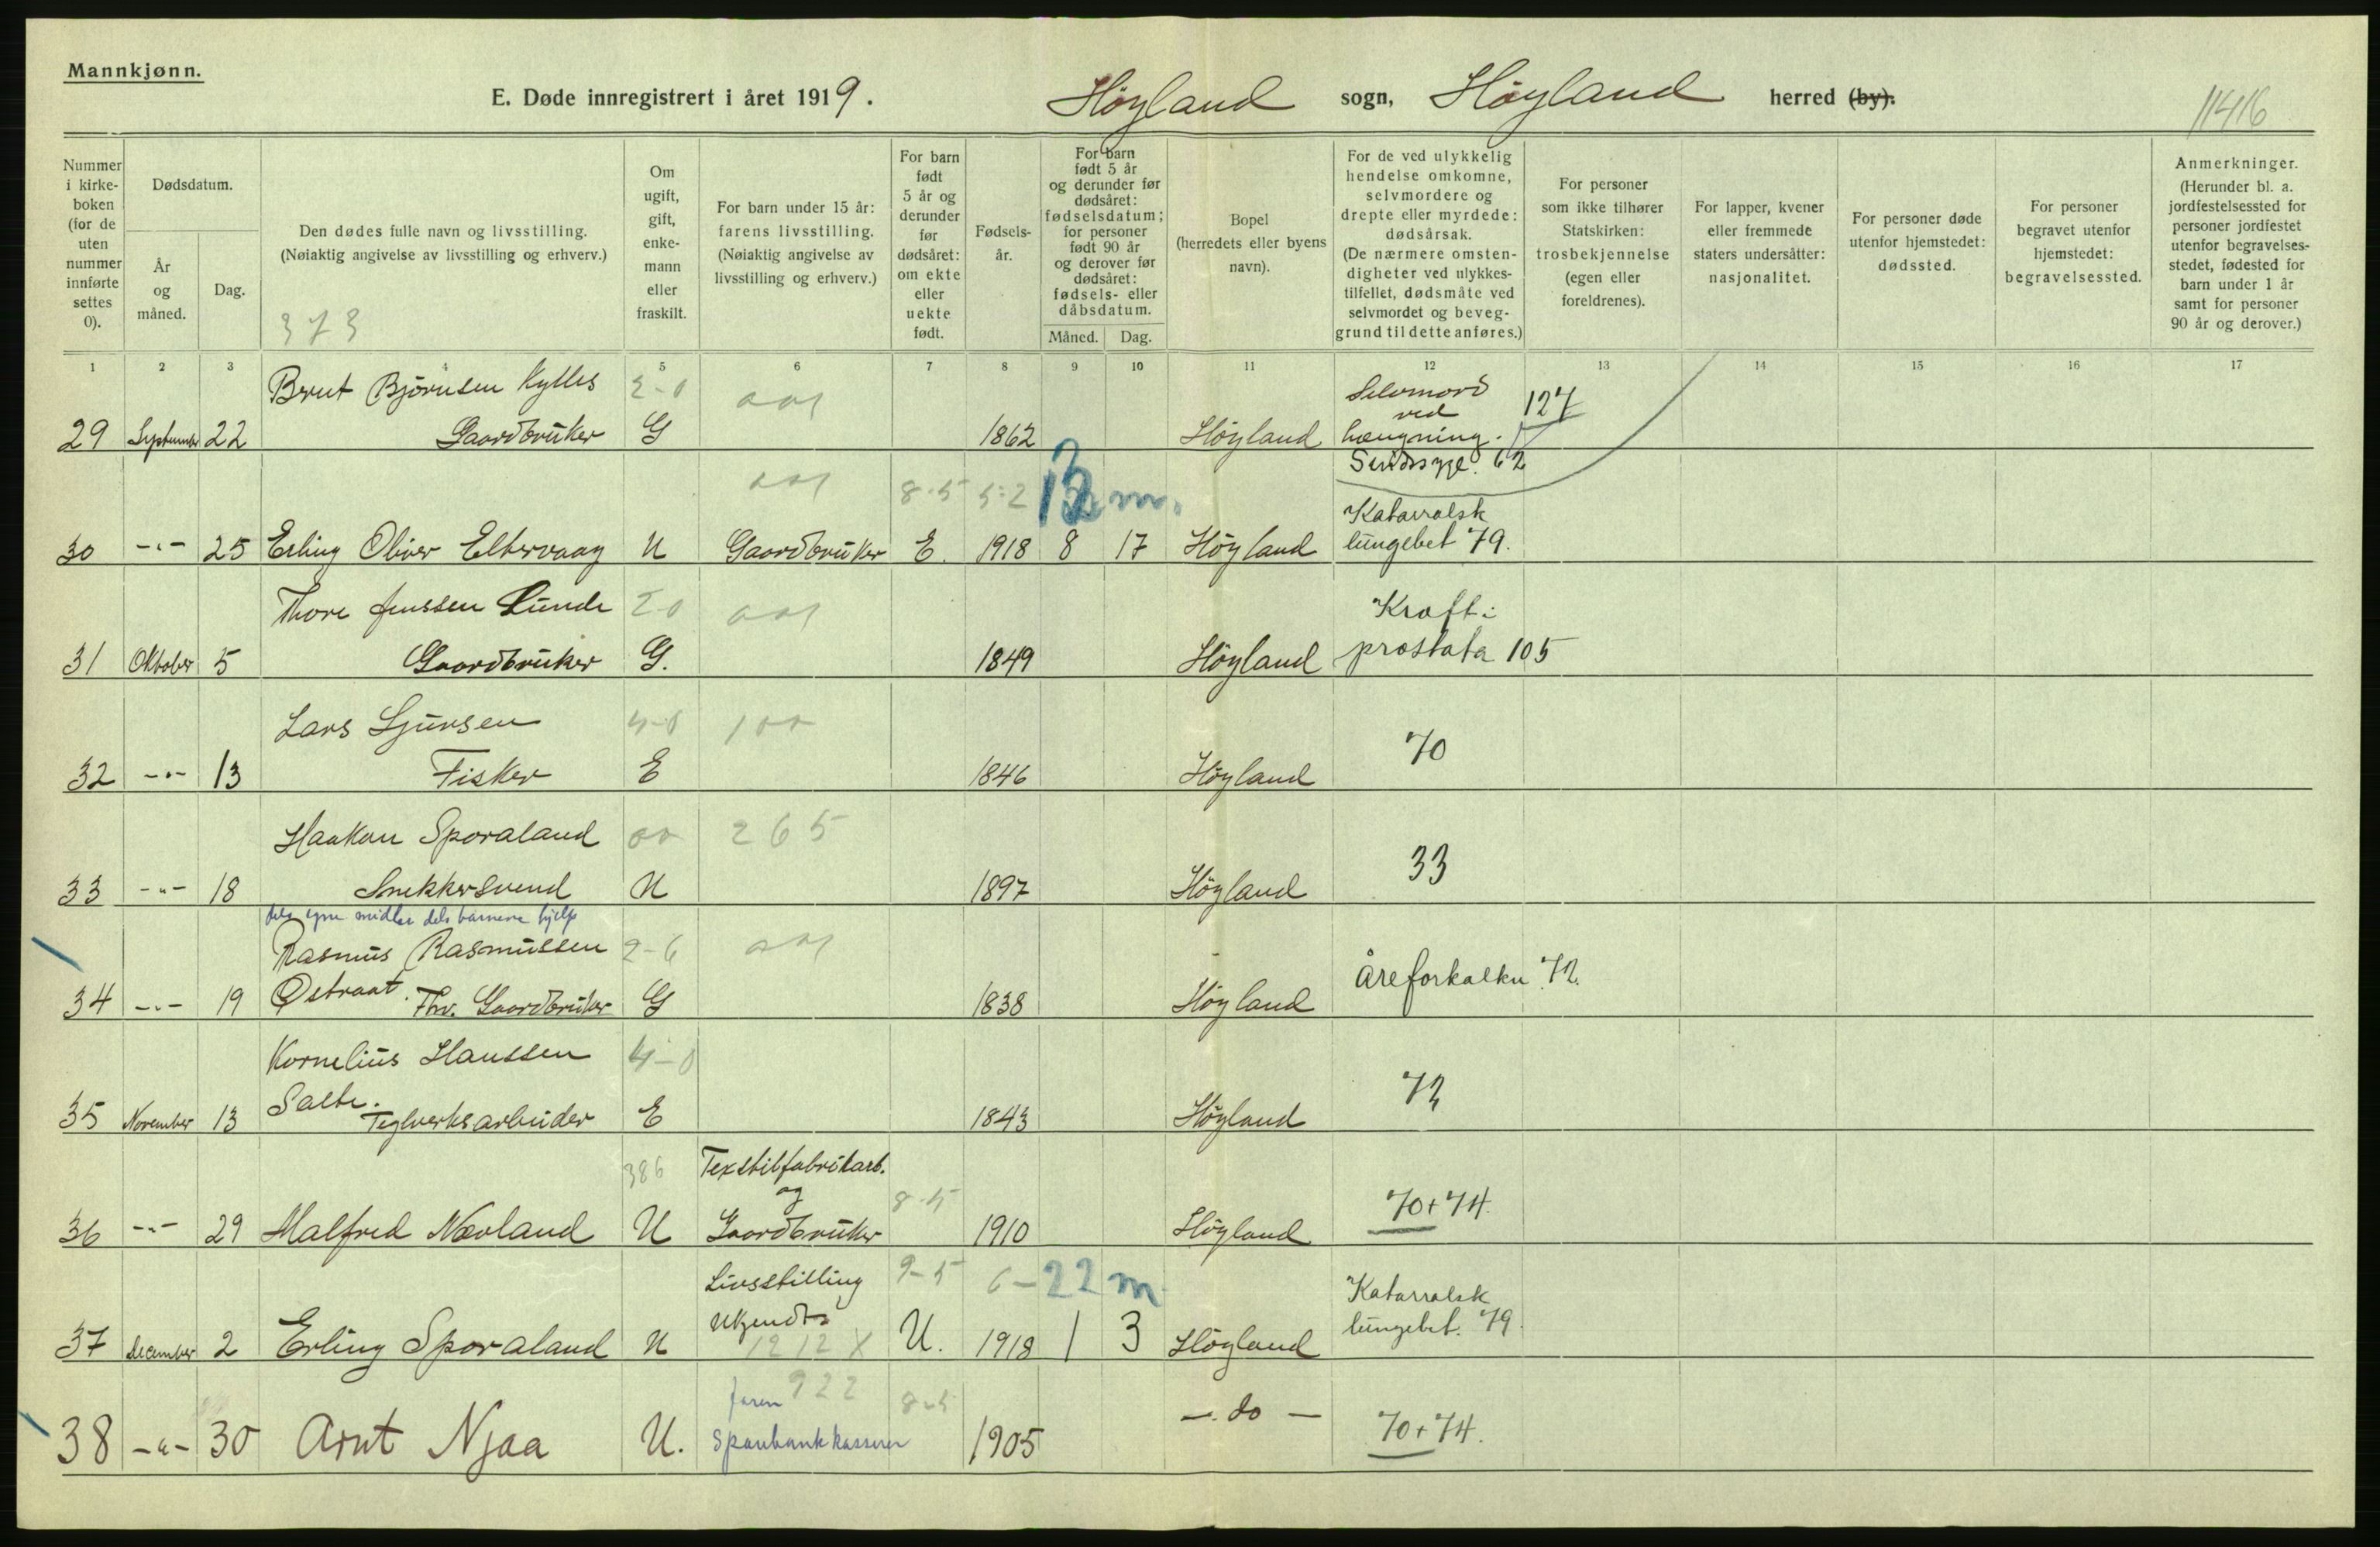 Mannkjønn.
E. Døde innregistrert i året 1919. Høyland sogn, Høyland herred (by).
11416
Nummer i kirke-boken (for de uten nummer innførte settes 0).
Dødsdatum.
År og måned.
Dag.
Den dødes fulle navn og livsstilling.
(Nøiaktig angivelse av livsstilling og erhverv.)
373
Om ugift, gift, enke-mann eller fraskilt.
For barn under 15 år: farens livsstilling.
(Nøiaktig angivelse av livsstilling og erhverv.)
For barn født 5 år og derunder før dødsåret: om ekte eller uekte født.
Fødsels-år.
For barn født 5 år og derunder før dødsåret: fødselsdatum; for personer født 90 år og derover før dødsåret: fødsels- eller dåbsdatum.
Måned. Dag.
Bopel (herredets eller byens navn).
For de ved ulykkelig hendelse omkomne, selvmordere og drepte eller myrdede: dødsårsak.
(De nærmere omsten-digheter ved ulykkes-tilfellet, dødsmåte ved selvmordet og beveg-grund til dette anføres.)
For personer som ikke tilhører Statskirken: trosbekjennelse (egen eller foreldrenes).
For lapper, kvener eller fremmede staters undersåtter: nasjonalitet.
For personer døde utenfor hjemstedet: dødssted.
For personer begravet utenfor hjemstedet: begravelsessted.
Anmerkninger.
(Herunder bl. a. jordfestelsessted for personer jordfestet utenfor begravelses-stedet, fødested for barn under 1 år samt for personer 90 år og derover.)
1 2 3 4 5 6 7 8 9 10 11 12 13 14 15 16 17
Brut Bjørnsen Kylles 2-0 001 Selvmord
ved 127
29 September 22 Gaardbruker G 1862 Höyland hængning.
Sindssyge. 62
001 8-5 5-2 13 m.
Katarralsk
30 -"- 25 Erling Oliver Eltervaag U Gaardbruker E. 1918 8 17 Höyland lungebet 79.
Thore Jenssen Lunde 2-0 001 Kræft i
31 Oktober 5 Gaardbruker G. 1849 Höyland prostata 105
Lars Sjursen 4-0 100
70
32 -"- 13 Fisker E 1846 Höyland
Haakon Sporaland 00 265
33
33 -"- 18 Snekkersvend U 1897 Höyland
dels egne midler dels barnens hjelp
Rasmus Rasmussen 2-6 001
Åreforkalkn. 72.
34 -"- 19 Østraat. Fhv. Gaardbruker G 1838 Höyland
Kornelius Hanssen 4-0
72
35 November 13 Salte. Teglverksarbeider E 1843 Höyland
386 Texstilfabrikarb.
og 8-5
70+74.
36 -"- 29 Malfred Nævland U Gaardbruker 1910 Höyland
Livsstilling 9-5 6-22 m.
Katarralsk
ukjendt lungebet. 79.
37 December 2 Erling Sporaland U 12 12 X U. 1918 1 3 Höyland
faren 922 8-5
-. do -
38 -"- 30 Arnt Njaa U. Sparebankkasserer 1905 70+74.